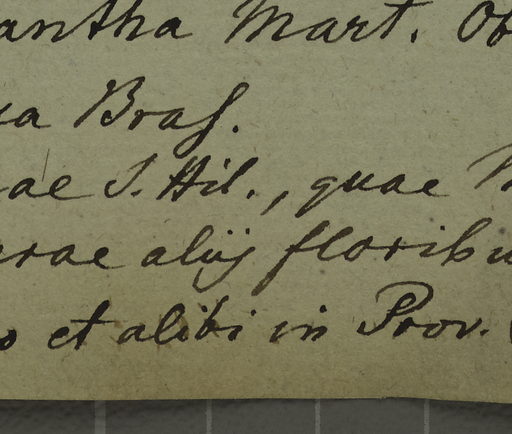 antha Mart. Ob
a Bras.
ae S. Hil., quae
rae alijs floribu
o et alibi in Prov.